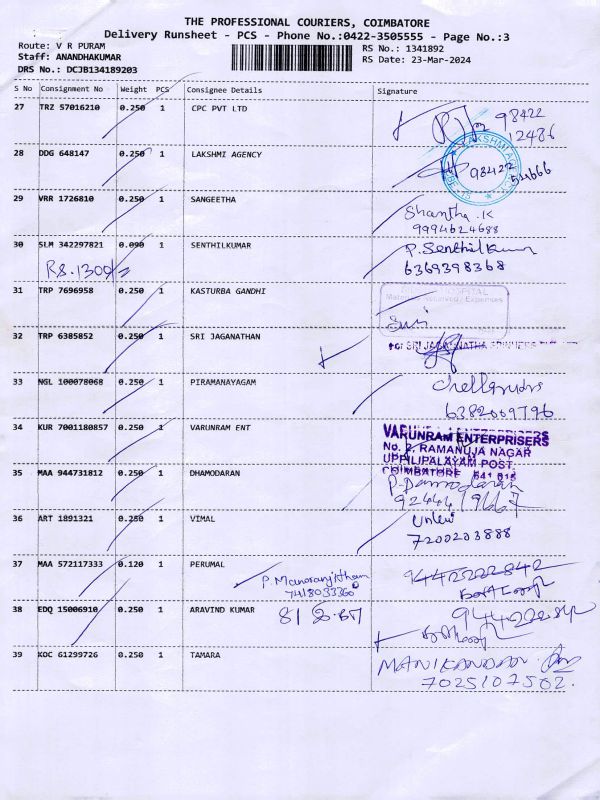 THE PROFESSIONAL COURIERS, COIMBATORE
Delivery Runsheet - PCS - Phone No.:0422-3505555 - Page No.:3
Route: V R PURAM
RS No.: 1341892
Staff: ANANDHAKUMAR
RS Date: 23-Mar-2024
DRS No.: DCJB134189203
S No Consignment No Weight PCS Consignee Details Signature
27 TRZ 57016210 0.250 1 CPC PVT LTD
98422
12486
28 DDG 648147 0.250 1 LAKSHMI AGENCY
98422
29 VRR 1726810 0.250 1 SANGEETHA
Shantha .K
9994624688
30 SLM 342297821 0.090 1 SENTHILKUMAR
P. Senthil Kumar
Rs. 1300/=
6369398368
31 TRP 7696958 0.250 1 KASTURBA GANDHI
HOSPITAL
32 TRP 6385852 0.250 1 SRI JAGANATHAN
For SRI JAGANNATHA SPINNERS
33 NGL 100078068 0.250 1 PIRAMANAYAGAM
6382009796
34 KUR 7001180857 0.250 1 VARUNRAM ENT
VARUNRAM ENTERPRISERS
No. 2, RAMANUJA NAGAR
UPPILIPALAYAM POST.
COIMBATORE 641 015
35 MAA 944731812 0.250 1 DHAMODARAN
P. Damodaran
92444 19667
36 ART 1891321 0.250 1 VIMAL
7200203888
37 MAA 572117333 0.120 1 PERUMAL
P. Manoranjitham
7418033360
9442222842
38 EDQ 15006910 0.250 1 ARAVIND KUMAR
39 KOC 61299726 0.250 1 TAMARA
MANIKANDAN
7025107502.